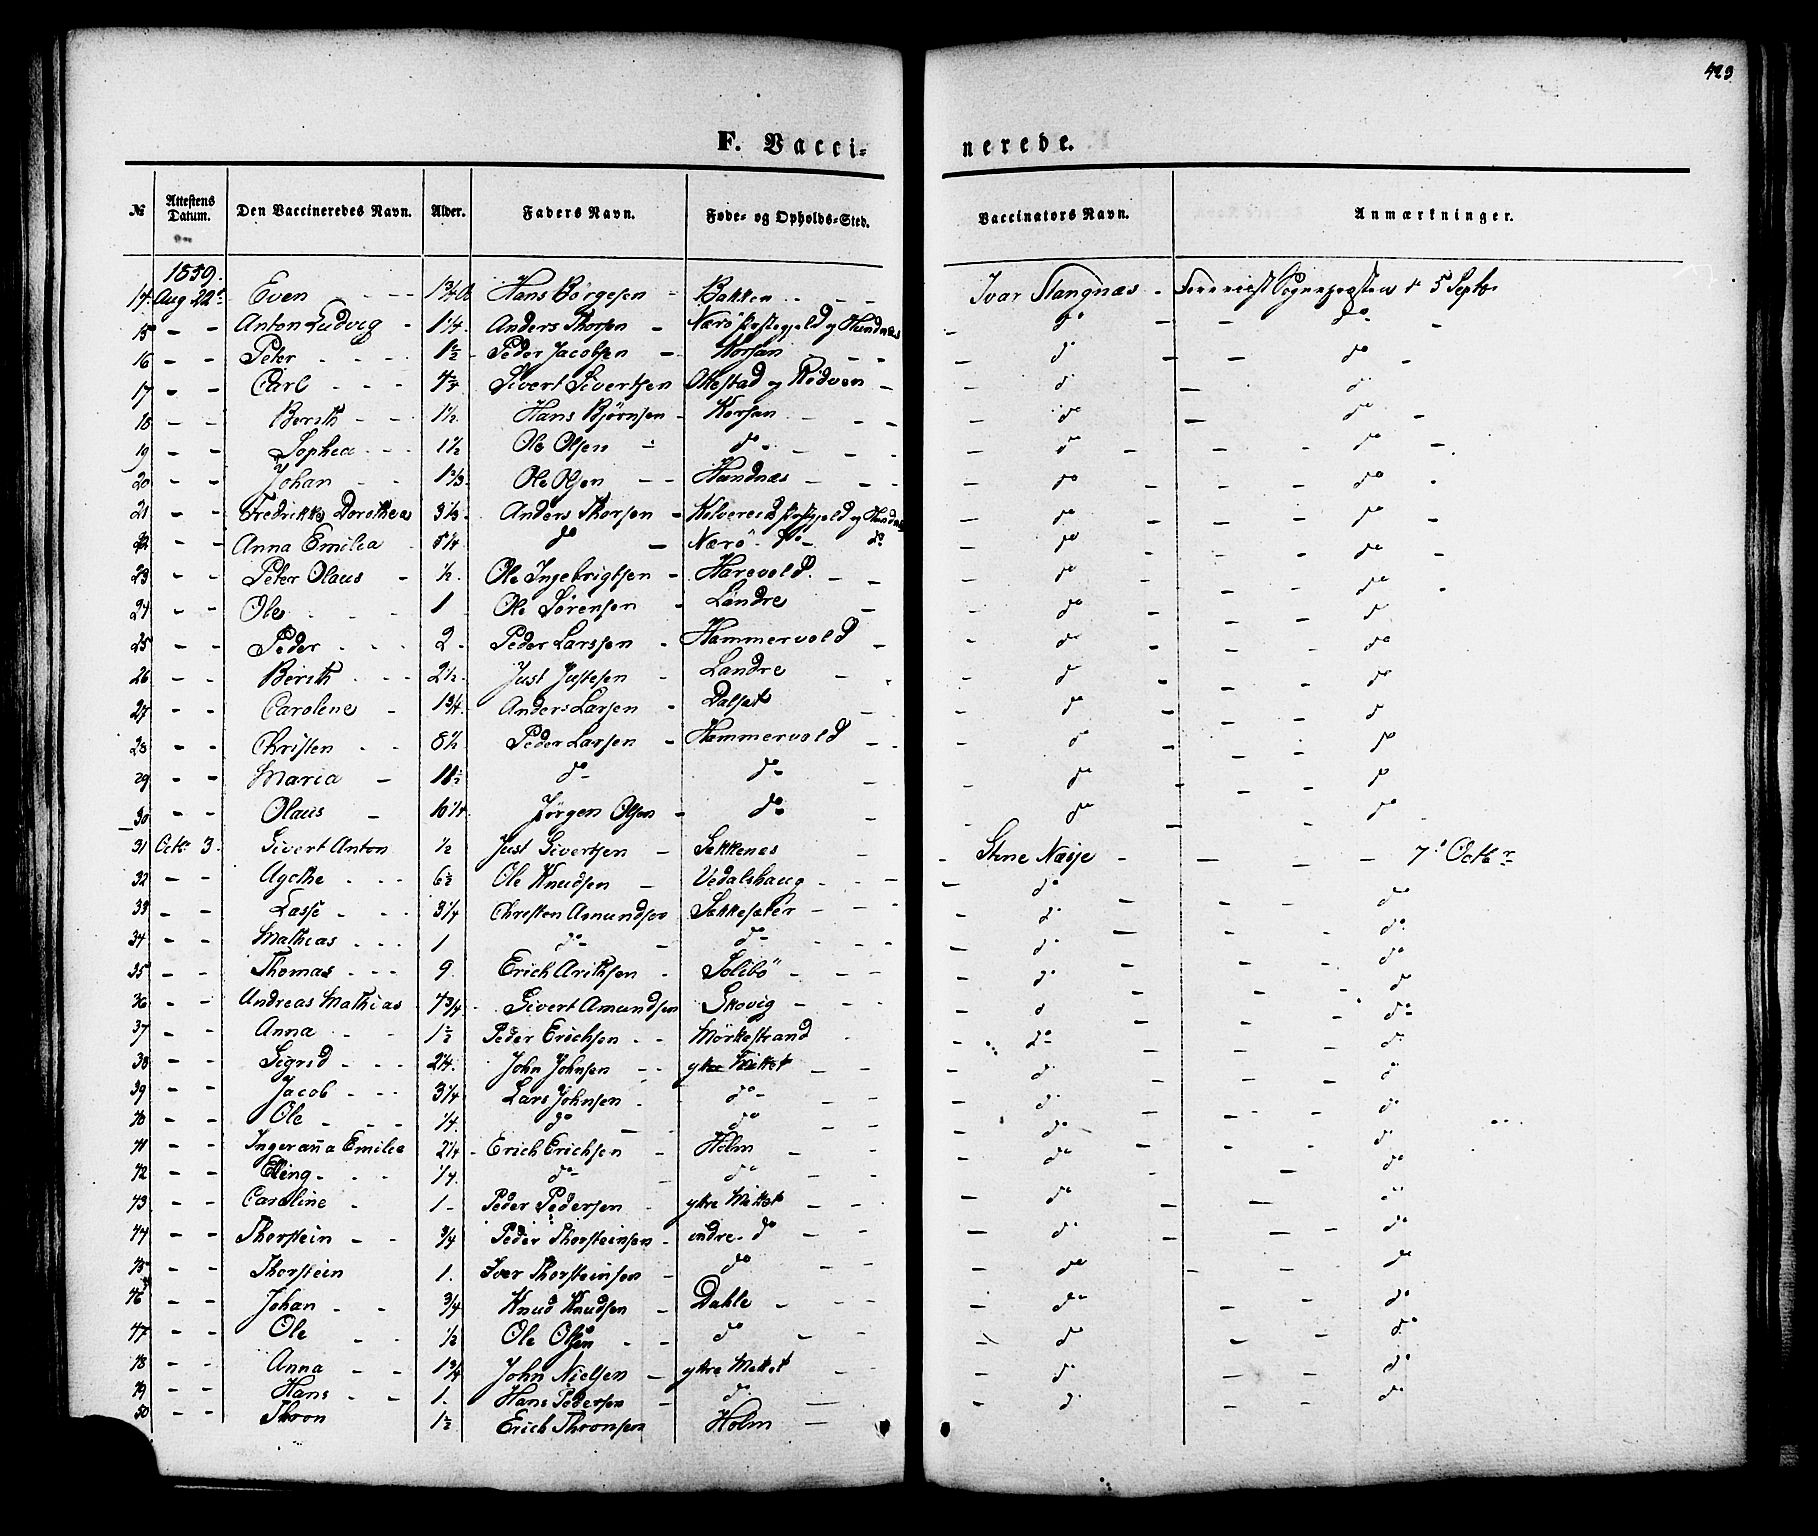 423
F. Vacci- nerede.
№ Attestens Datum. Den Vaccineredes Navn. Alder. Faders Navn. Føde- og Opholds-Sted. Vaccinators Navn. Anmærkninger.
1859.
14. Aug 22 Even - - 1 3/4 Hans Börgesen - Bakken - - Ivar Stangnæs - Sognepræsten d 5 Septbr
15 - - Anton Ludvig - 1 1/4 Anders Thorsen - Nærö Præstegjeld og Hundnæs - do - - do -
16 - - Peter - - - 1 1/2 - Peder Jacobsen - Korsan - - - do - - do -
17 - - Carl - - - 4 3/4 Sivert Sivertsen Okestad og Rödven - - do - do
18 - - Berith - - 1 1/2 Hans Bjørnsen - Korsan - - - - do - do -
19 - - Sophia - - - 1 1/2 Ole Olsen - do - - - - - do - - - do -
20 - - Johan - - 1 2/3 Ole Olsen - - Hundnæs - - - - do - - do -
21 - - Fredrikke Dorothea 3 1/3 Anders Thorsen - Kolvereid Præstegjeld og Hundnæs - do - - do -
22 - - Anna Emilia 5 1/4 do - Nærö - do - do - do - - do -
23 - - Peter Olaus - 1/2 Ole Ingebrigtsen - Harevold. - - - do - - - do -
24 - - Ole - - 1 Ole Sørensen - Landre - - do - - - do
25 - - Peder - - - 2 - Peder Larssen - Hammervold - - do - - - do
26 - - Berith - - - 2 1/2 Just Justesen - Landre - - - do - - - do
27 - - Carolene - 1 3/4 Anders Larsen - Dalset - - - do - - - do
28 - - Christen - - 8 1/2 Peder Larsen - Hammervold - - - do - - - do
29 - - Maria - 11 1/2 do - do - - - do - - - do
30 - - Olaus - 10 1/4 Jørgen Olsen - do - - do - - - do
31 Octb 3. Sivert Anton 1/2 Just Sivertsen - Sækkenes - - Stene Næsje - - - - 7d Octbr
32 - - Agethe - - - 6 1/2 Ole Knudsen - Vedalshaug - - - - do - - - do
33 - - Lasse - - - 3 1/4 Christen Asmundsen Sækkesæter - - - - do - - - do
34 - - Mathias - - - 1 do - do - - - - - do - - - do
35 - - Thomas - - - 9. Erich Arithsen - Solibö - - - - do - - - do
36 - - Andreas Mathias 4 3/4 - Sivert Amundsen Skovig - - - - do - - - do
37 - - Anna - - 1 1/2 Peder Erichsen - - Mörkestrand - - do - - - do
38 - - Sigrid - - - 2 1/4. John Johnsen - - ytre Mittet - - - do - - - do
39 - - Jacob - - - 3 1/4 Lars Johnsen - do - - - - do - - - do
40 - - Ole - - - 1/4. do - do - - - do - - - do
41 - - Ingeranna Emilia 2 1/4 - Erich Erichsen - Holm - - - do - - - do
42 - - Elling - - - 1/4. do - do - - - do - - - do
43 - - Caroline - 1 - Peder Pedersen - ytre Mittet - - - do - - - do
44 - - Thorstein - - 3/4 Peder Thorsteinsen - indre do - - - do - - - do
45 - - Thorstein 1. Iver Thorsteinsen - do - - - do - - do
46 - - Johan - - 3/4 Knud Knudsen - Dahle - - - do - - - do
47 - - Ole - - 1/2 Ole Olsen - - do - - - do - - do
48 - - Anna - - 1 3/4 John Nielsen - ytre Mittet - - do - - do
49 - - Hans - - 1. Hans Pedersen - do - - do - - do
50 - - Thron 1 1/2 Erich Thronsen Holm -